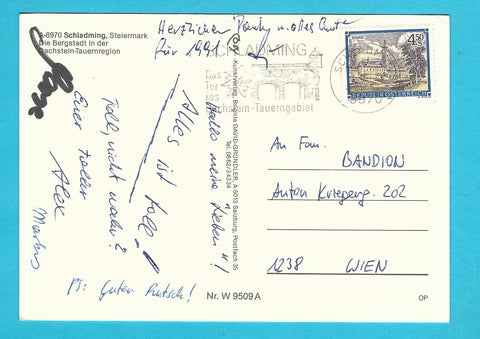 A-8970 Schladming, Steiermark
Die Bergstadt in der
Dachstein-Tauernregion
Herzlichen Dank u. alles Gute
für 1991
SCHLADMING
Das
Tor
ins
Dachstein-Tauerngebiet
8970
4.50
REPUBLIK ÖSTERREICH
Hallo meine Lieben!
Alles ist toll!
Toll, nicht wahr?
Euer toller
Alex
Markus
PS: Guten Rutsch!
Kunstverlag, Brigitte DAVID-GRÜNDLER, A-5013 Salzburg, Postfach 35
Tel. 0662/34234
An Fam.
BANDION
Anton Kriegerg. 202
1238 WIEN
Nr. W 9509 A
OP